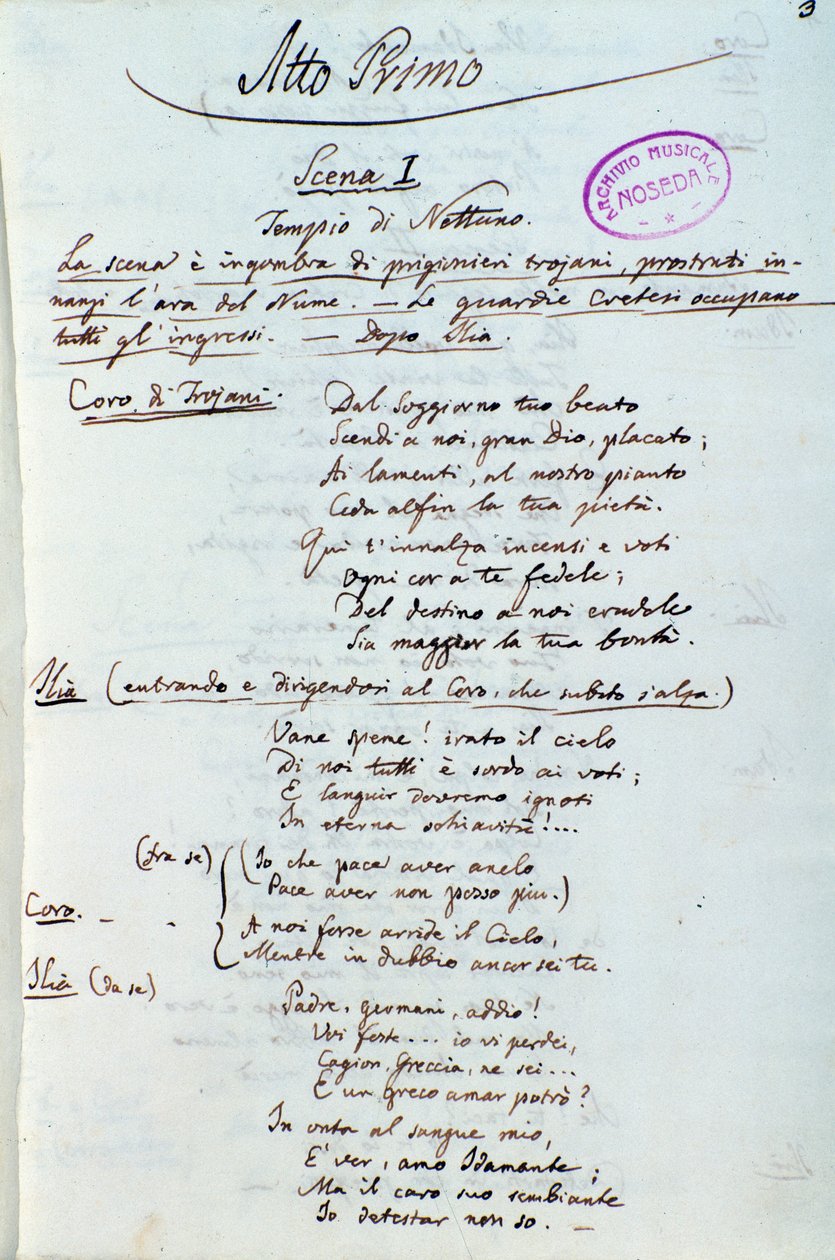 3
Atto Primo
ARCHIVIO MUSICALE
NOSEDA
Scena I
Tempio di Nettuno.
La scena è ingombra di prigionieri trojani, prostrati in-
nanzi l'ara del Nume. — Le guardie Cretesi occupano
tutti gl'ingressi. — Dopo Ilia.
Coro di Trojani. Dal soggiorno tuo beato
Scendi a noi, gran Dio, placato;
Ai lamenti, al nostro pianto
Ceda alfin la tua pietà.
Qui t'innalza incensi e voti
Ogni cor a te fedele;
Del destino a noi crudele
Sia maggior la tua bontà.
Ilia (entrando e dirigendosi al Coro, che subito s'alza.)
Vane speme! irato il cielo
Di noi tutti è sordo ai voti;
E languir dovremo ignoti
In eterna schiavitù!...
(fra se) (Io che pace aver anelo
Pace aver non posso più.)
Coro. - - A noi forse arride il Cielo,
Mentre in dubbio ancor sei tu.
Ilia (da se)
Padre, germani, addio!
Voi foste... io vi perdei,
Cagion, Greccia, ne sei...
E un greco amar potrò?
In onta al sangue mio,
E' ver, amo Idamante;
Ma il caro suo sembiante
Io detestar non so. —